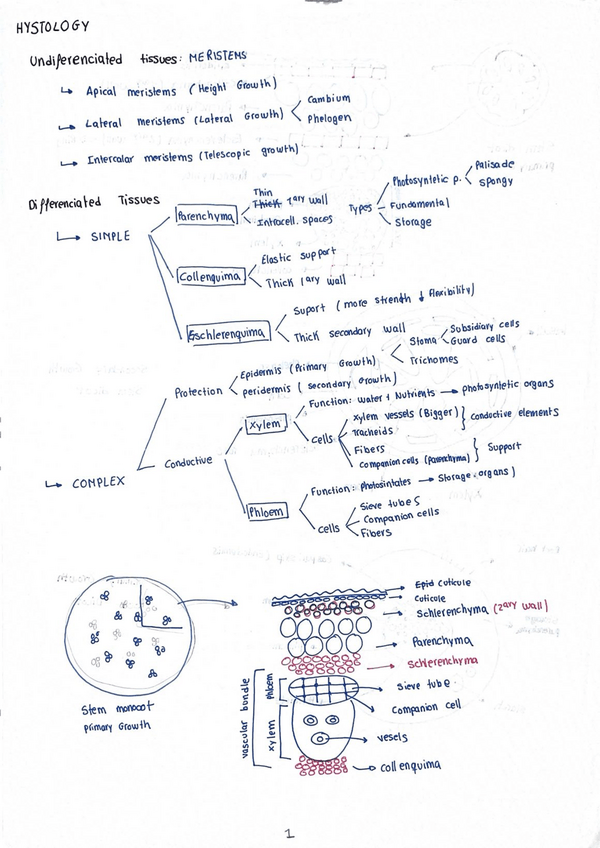 HYSTOLOGY
Undiferenciated tissues: MERISTEMS
Apical meristems (Height Growth)
Lateral meristems (Lateral Growth)
Cambium
Phelogen
Intercalar meristems (Telescopic growth)
Differenciated Tissues
SIMPLE
Parenchyma
Thin
Thick 1ary wall
Intracell. spaces
Types
Photosyntetic p.
Palisade
Spongy
Fundamental
Storage
Collenquima
Elastic support
Thick 1ary wall
Eschlerenquima
Suport (more strength ↓ flexibility)
Thick secondary wall
COMPLEX
Protection
Epidermis (Primary Growth)
Stoma
Subsidiary cells
Guard cells
Trichomes
peridermis (secondary growth)
Conductive
Xylem
Function: Water + Nutrients → photosyntetic organs
Cells
Xylem vessels (Bigger)
Tracheids
conductive elements
Fibers
Companion cells (Parenchyma)
Support
Phloem
Function: Photosintates → Storage organs)
cells
Sieve tubes
Companion cells
Fibers
Stem monocot
Primary Growth
Epid Cuticule
Cuticule
Schlerenchyma (2ary wall)
Parenchyma
Schlerenchyma
Sieve tube
Companion cell
vesels
collenquima
vascular bundle
phloem
xylem
1